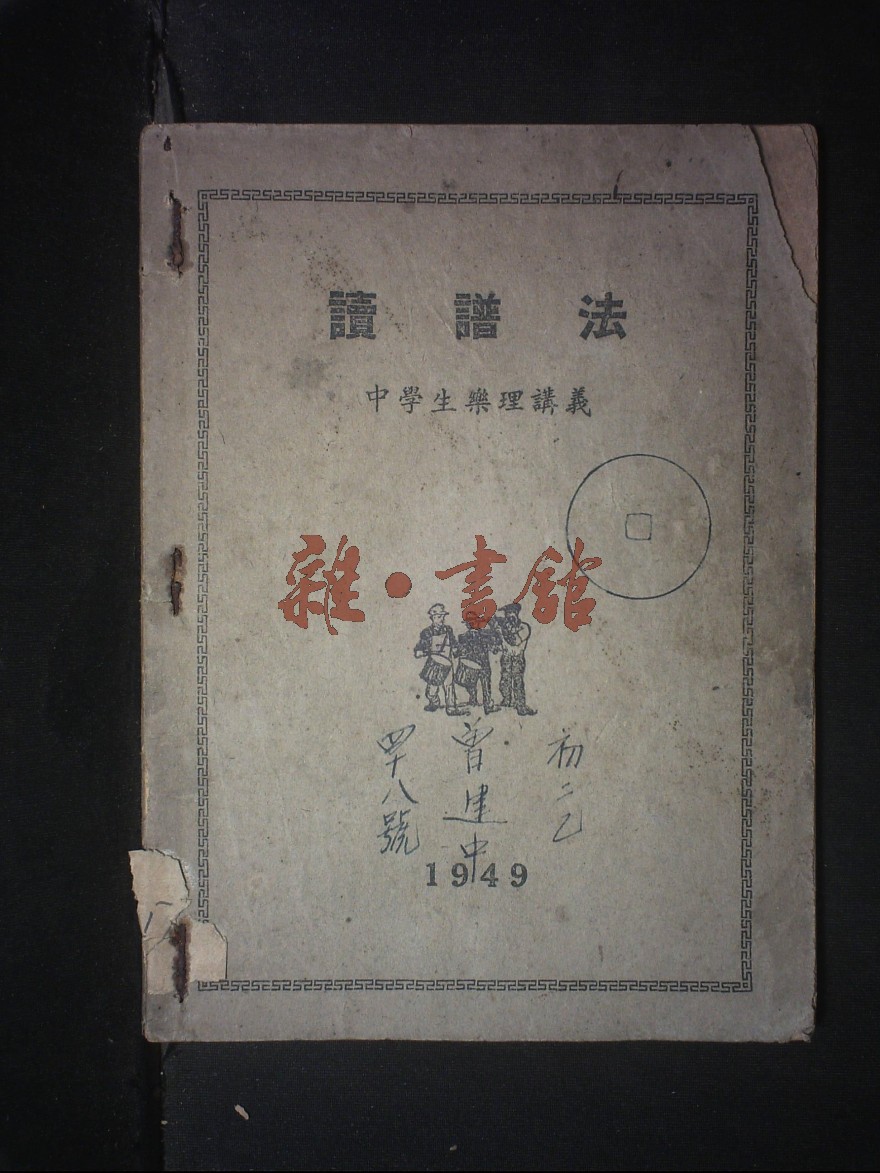 讀譜法
中學生樂理講義
雜·書館
初二乙
曾建中
四十八號
1949